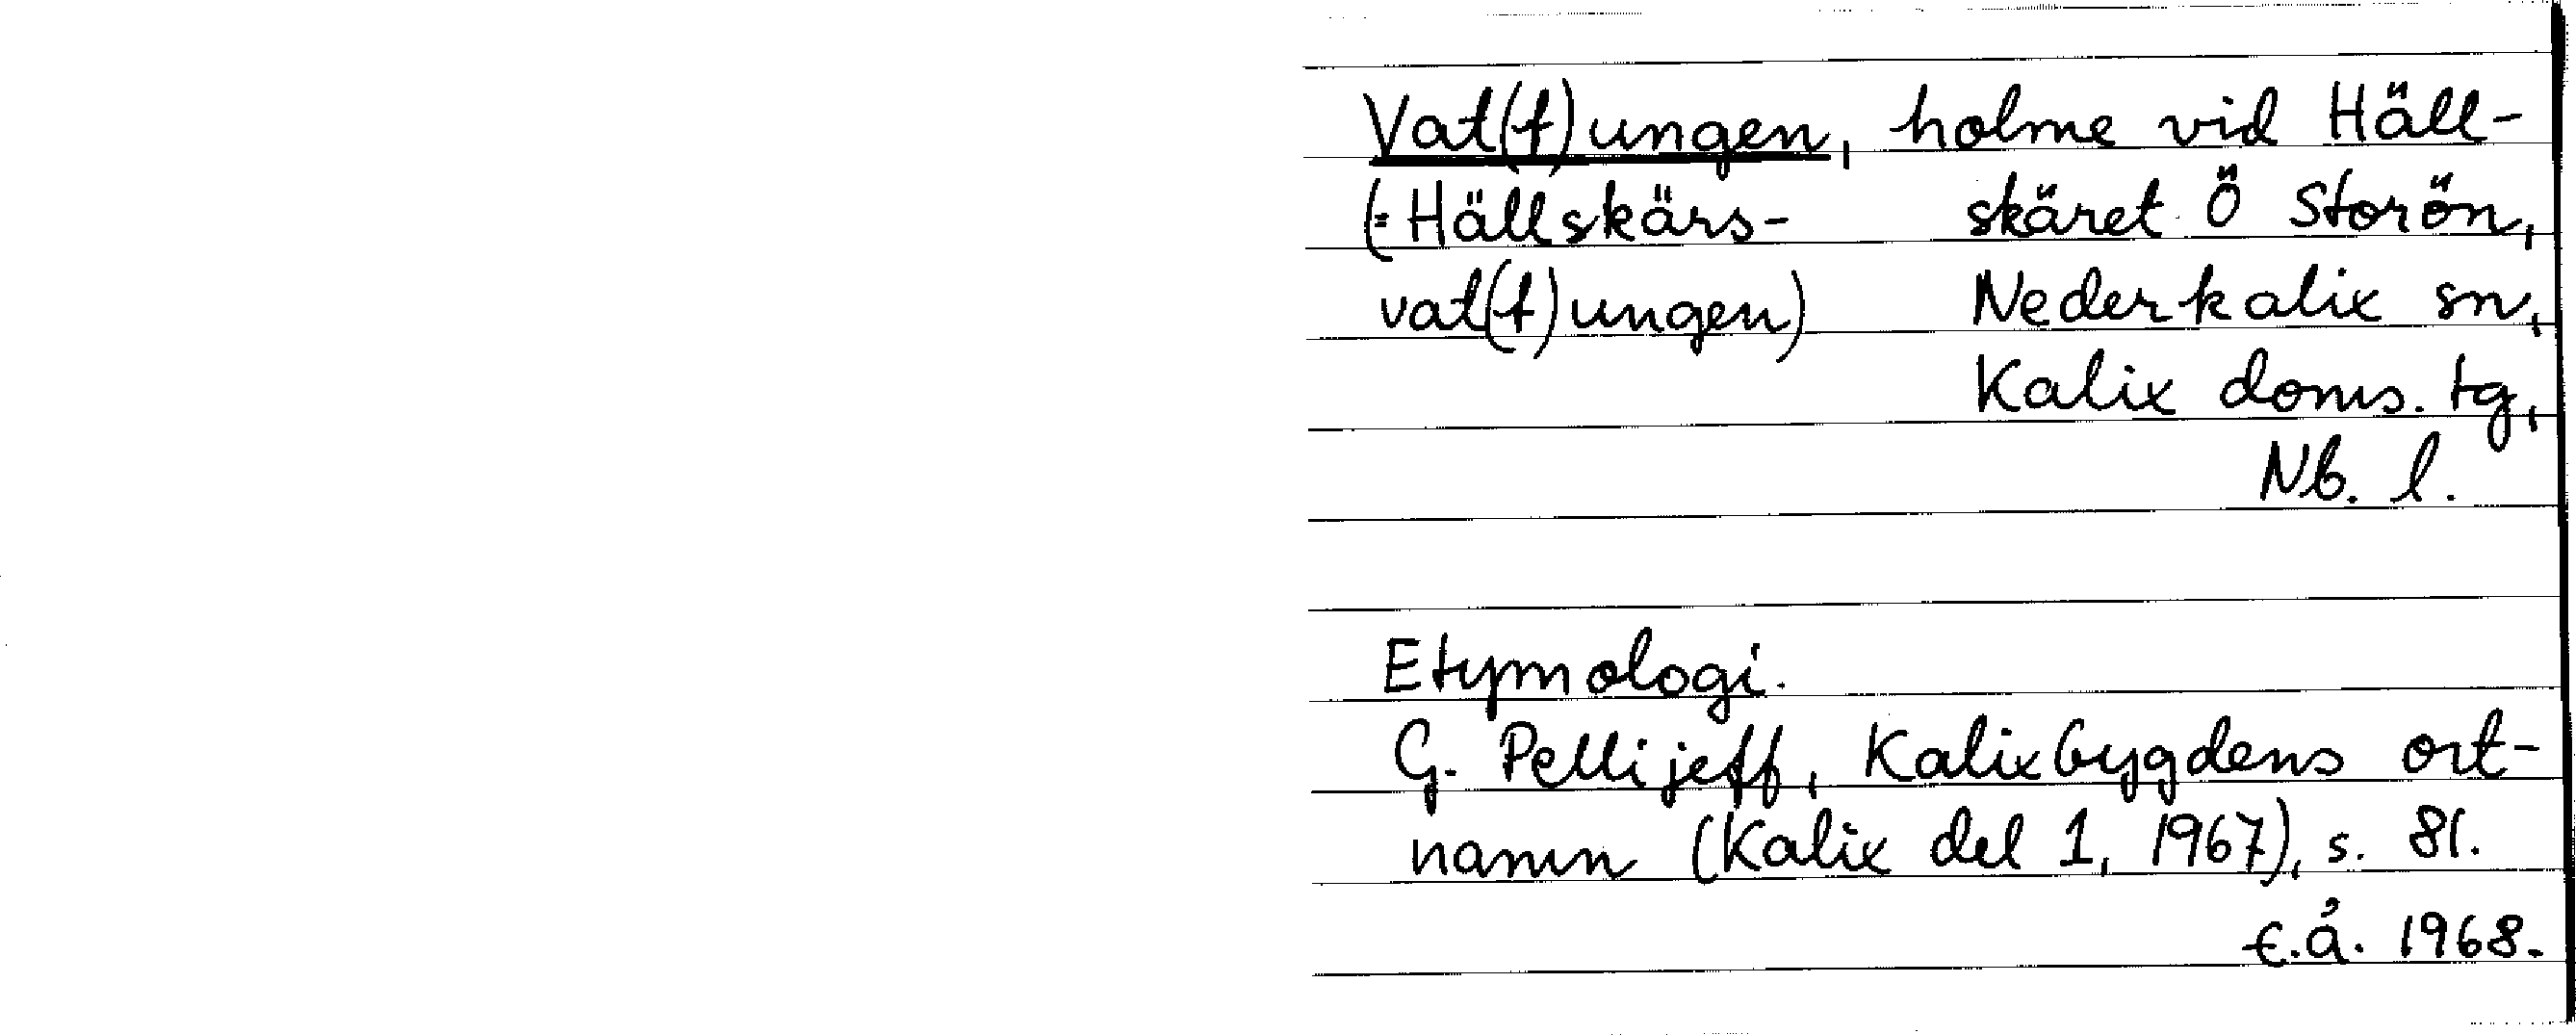 Vat(t)ungen, holme vid Häll-
(=Hällskärs- skäret Ö Storön,
vat(t)ungen) Nederkalix sn,
Kalix doms. tg,
Nb. l.
Etymologi.
G. Pellijeff, Kalixbygdens ort-
namn (Kalix del 1, 1967), s. 81.
E.å. 1968.